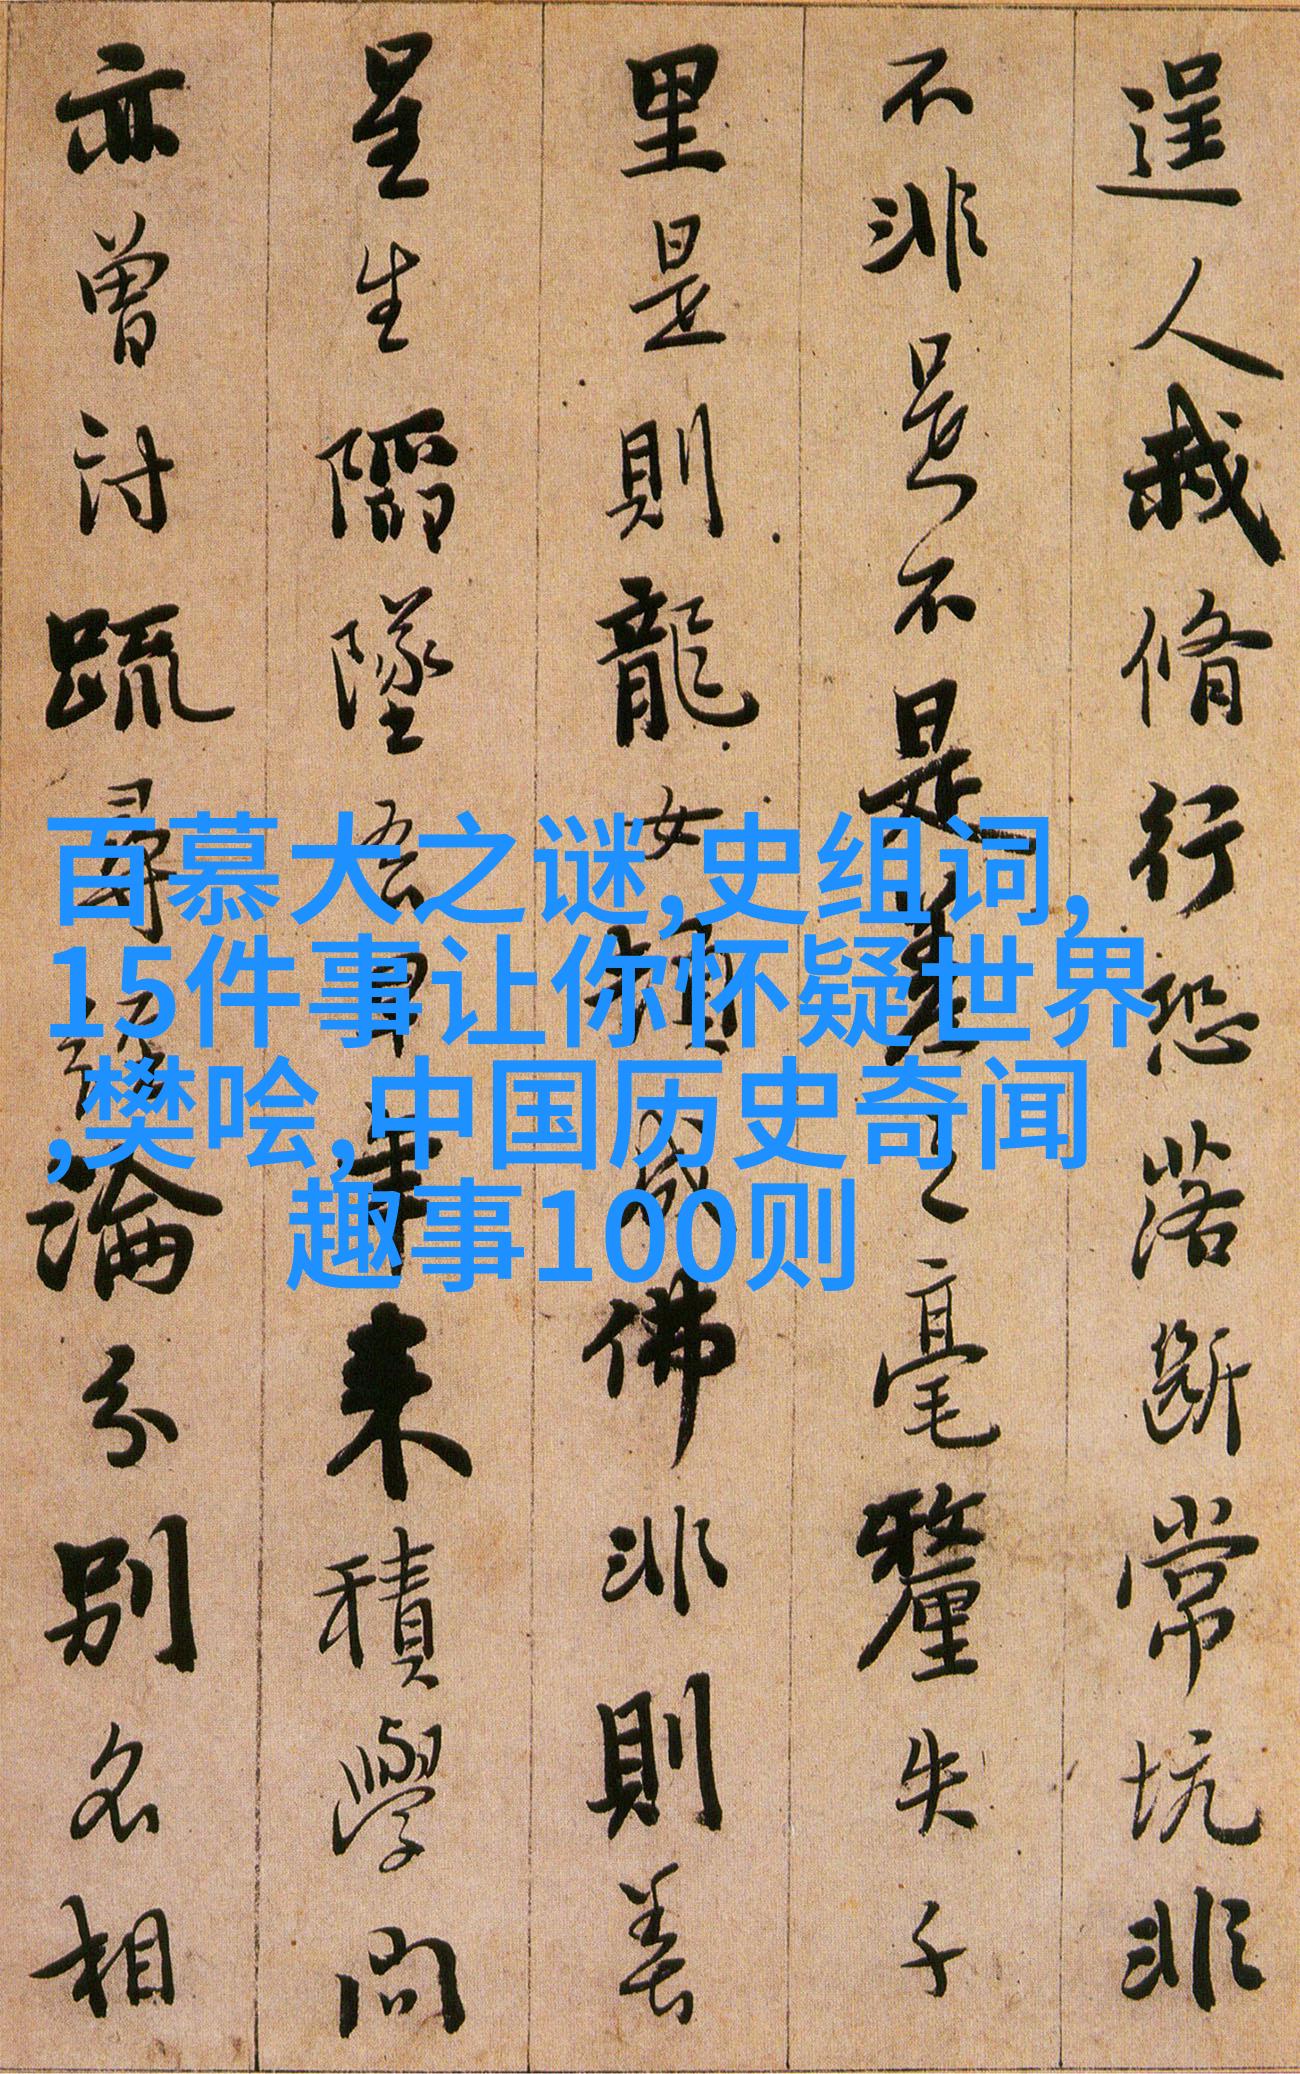 逞人我脩行恐落斷常坑非
不非是不是差之毫釐失千
里是則龍女頓成佛非則善
星生陷墜吾早年來積學問
亦曾討疏尋經論分別名相
百慕大之谜,史组词,
15件事让你怀疑世界
,樊哙,中国历史奇闻
趣事100则